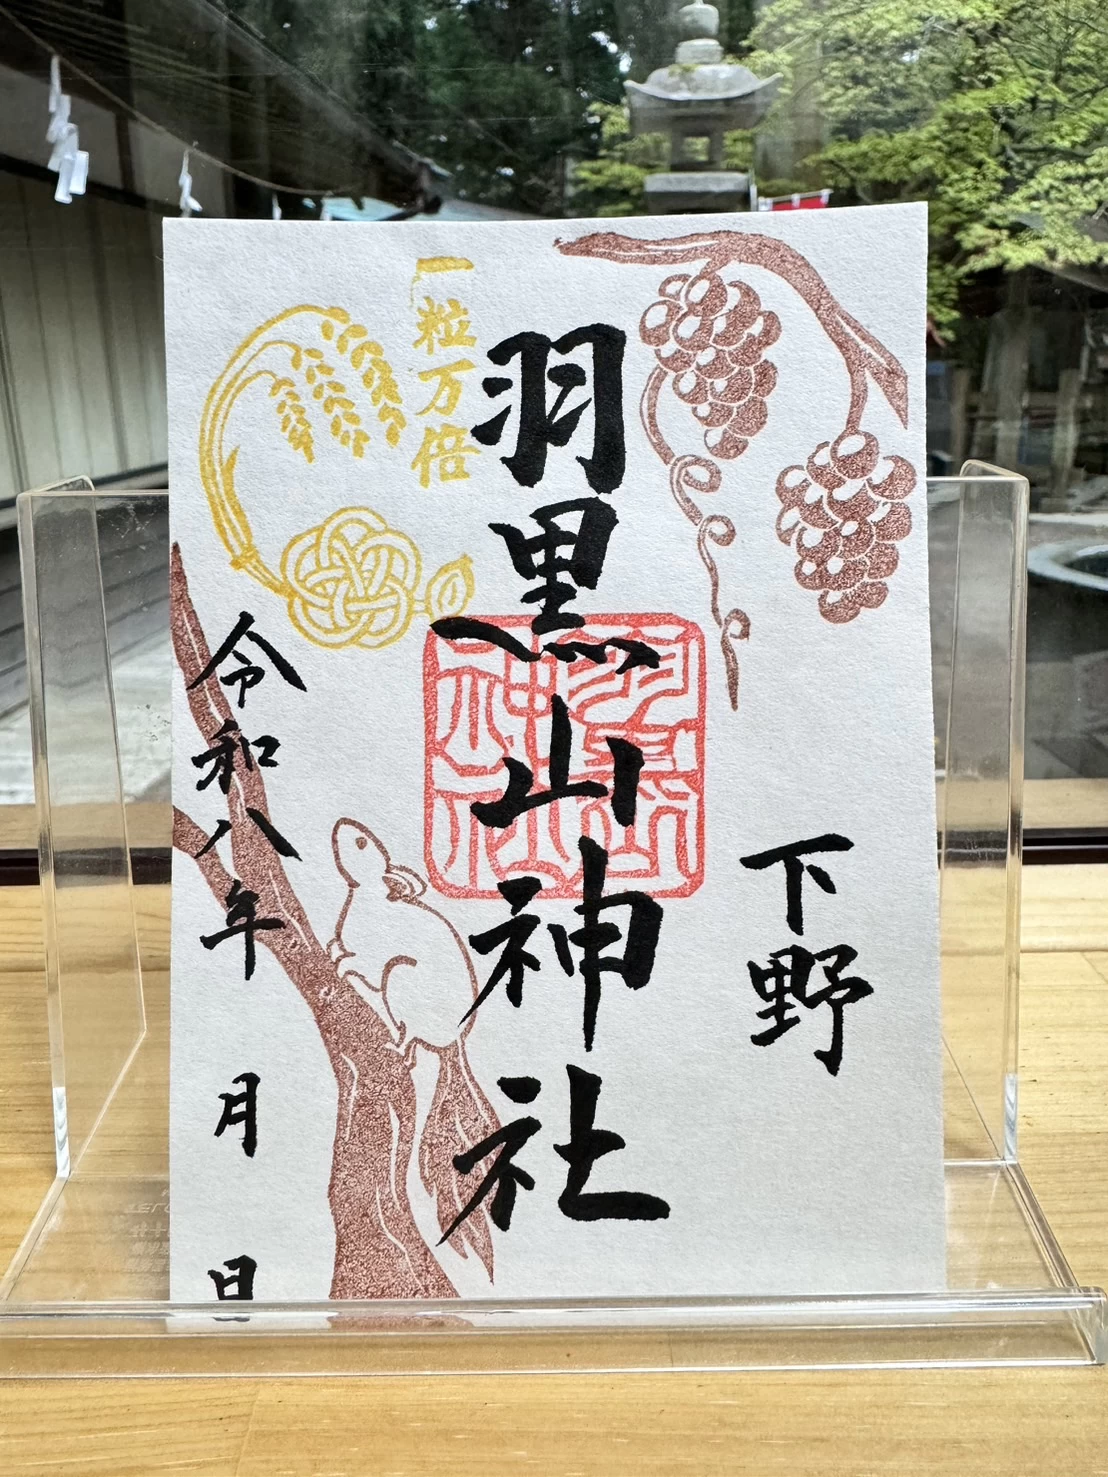 下野
羽黒山神社
一粒万倍
令和八年 月 日